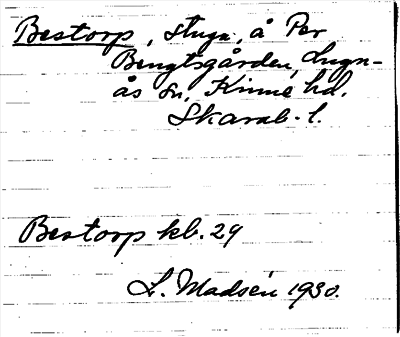 Bestorp, stuga, å Per
Bengtsgården, Lugn-
ås sn, Kinne hd.
Skarab. l.
Bestorp kb. 29
L. Madsén 1930.